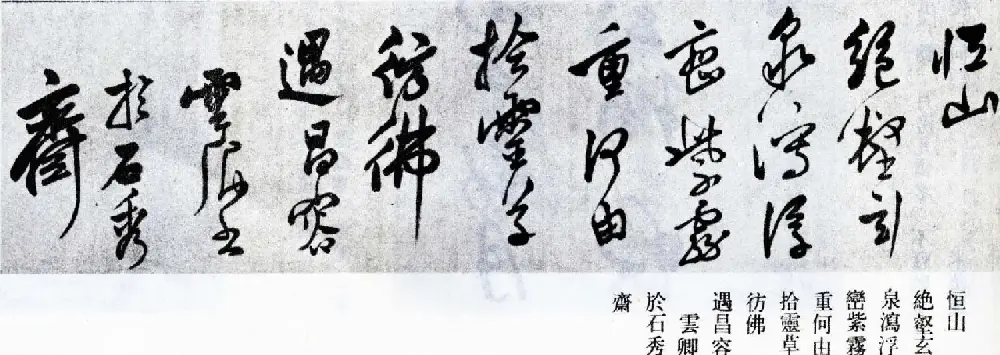 恒山
絶壑玄
泉瀉浮
巒紫霧
重何由
拾靈草
彷佛
遇昌容
雲卿書
於石秀
齋
恒山
絶壑玄
泉瀉浮
巒紫霧
重何由
拾靈草
彷佛
遇昌容
雲卿
於石秀
齋